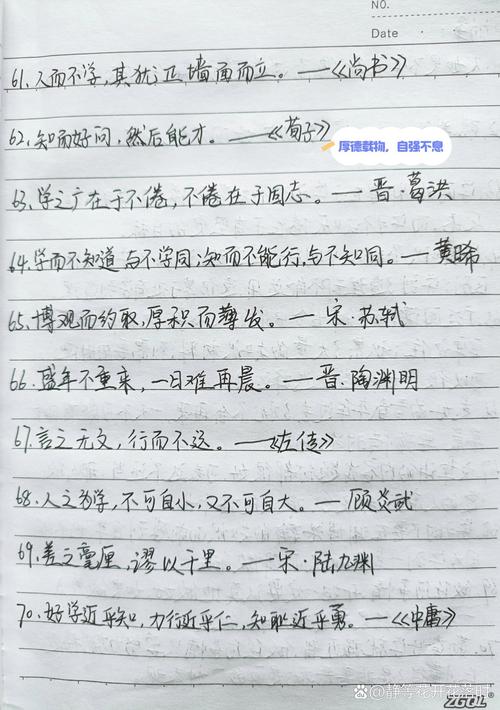 NO.
Date
61.人而不学,其犹正墙面而立。——《尚书》
62.知而好问,然后能才。——《荀子》
厚德载物,自强不息
63.学之广在于不倦,不倦在于固志。——晋·葛洪
64.学而不知道,与不学同;知而不能行,与不知同。——黄晞
65.博观而约取,厚积而薄发。——宋·苏轼
66.盛年不重来,一日难再晨。——晋·陶渊明
67.言之无文,行而不远。——《左传》
68.人之为学,不可自小,又不可自大。——顾炎武
69.差之毫厘,谬以千里。——宋·陆九渊
70.好学近乎知,力行近乎仁,知耻近乎勇。——《中庸》
静等花开花落时
ZGQL